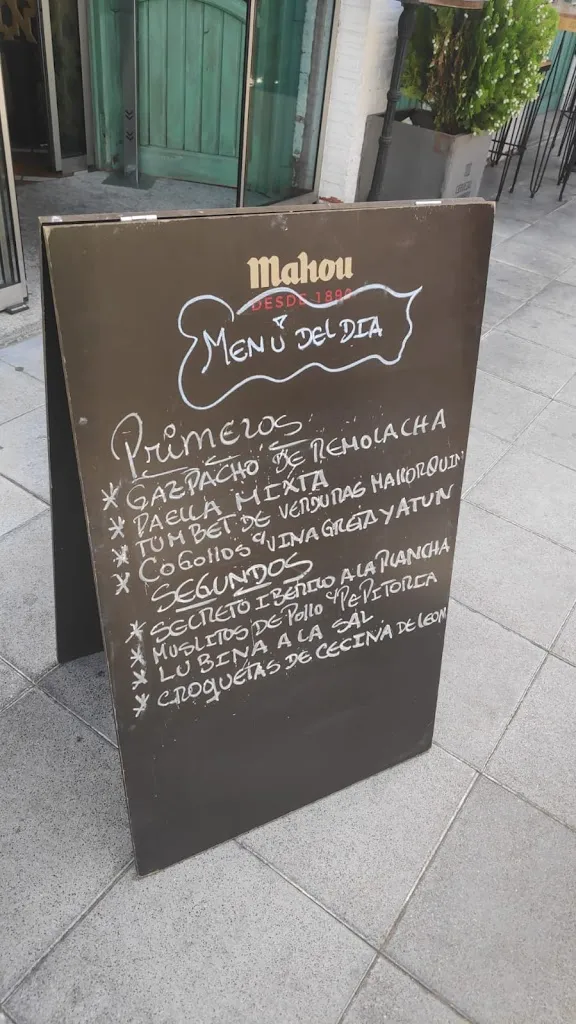 Mahou
DESDE 1890
MENÚ DEL DIA
Primeros
* GAZPACHO DE REMOLACHA
* PAELLA MIXTA
* TUMBET DE VERDURAS MALLORQUIN
* COGOLLOS VINAGRETA Y ATUN
SEGUNDOS
* SECRETO IBERICO A LA PLANCHA
* MUSLITOS DE POLLO PEPITORIA
* LUBINA A LA SAL
* CROQUETAS DE CECINA DE LEON